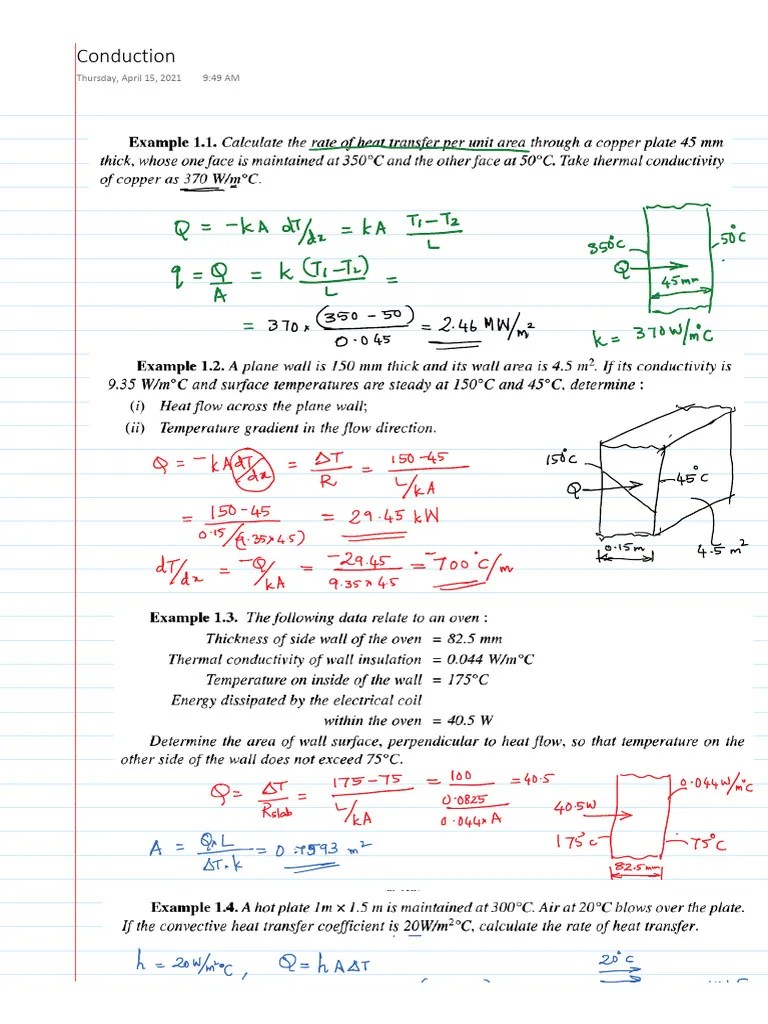 Conduction
Thursday, April 15, 2021 9:49 AM
Example 1.1. Calculate the rate of heat transfer per unit area through a copper plate 45 mm
thick, whose one face is maintained at 350°C and the other face at 50°C. Take thermal conductivity
of copper as 370 W/m°C.
Q = -kA dT/dx = kA (T₁-T₂)/L
q = Q/A = k (T₁-T₂)/L =
= 370 × (350 - 50)/0.045 = 2.46 MW/m²
350°C
50°C
Q
45mm
k = 370W/m°C
Example 1.2. A plane wall is 150 mm thick and its wall area is 4.5 m². If its conductivity is
9.35 W/m°C and surface temperatures are steady at 150°C and 45°C, determine :
(i) Heat flow across the plane wall;
(ii) Temperature gradient in the flow direction.
Q = -kA dT/dx = ΔT/R = 150-45/L/kA
= 150-45/0.15/(9.35×4.5) = 29.45 kW
dT/dx = -Q/kA = -29.45/9.35×4.5 = -700°C/m
150°C
45°C
Q
0.15m
4.5 m²
Example 1.3. The following data relate to an oven :
Thickness of side wall of the oven = 82.5 mm
Thermal conductivity of wall insulation = 0.044 W/m°C
Temperature on inside of the wall = 175°C
Energy dissipated by the electrical coil
within the oven = 40.5 W
Determine the area of wall surface, perpendicular to heat flow, so that temperature on the
other side of the wall does not exceed 75°C.
Q = ΔT/Rslab = 175-75/L/kA = 100/0.0825/0.044×A = 40.5
A = Q×L/ΔT.k = 0.7593 m²
0.044W/m°C
40.5W
175°C
75°C
82.5mm
Example 1.4. A hot plate 1m × 1.5 m is maintained at 300°C. Air at 20°C blows over the plate.
If the convective heat transfer coefficient is 20W/m²°C, calculate the rate of heat transfer.
h = 20W/m²°C, Q = hAΔT
20°C